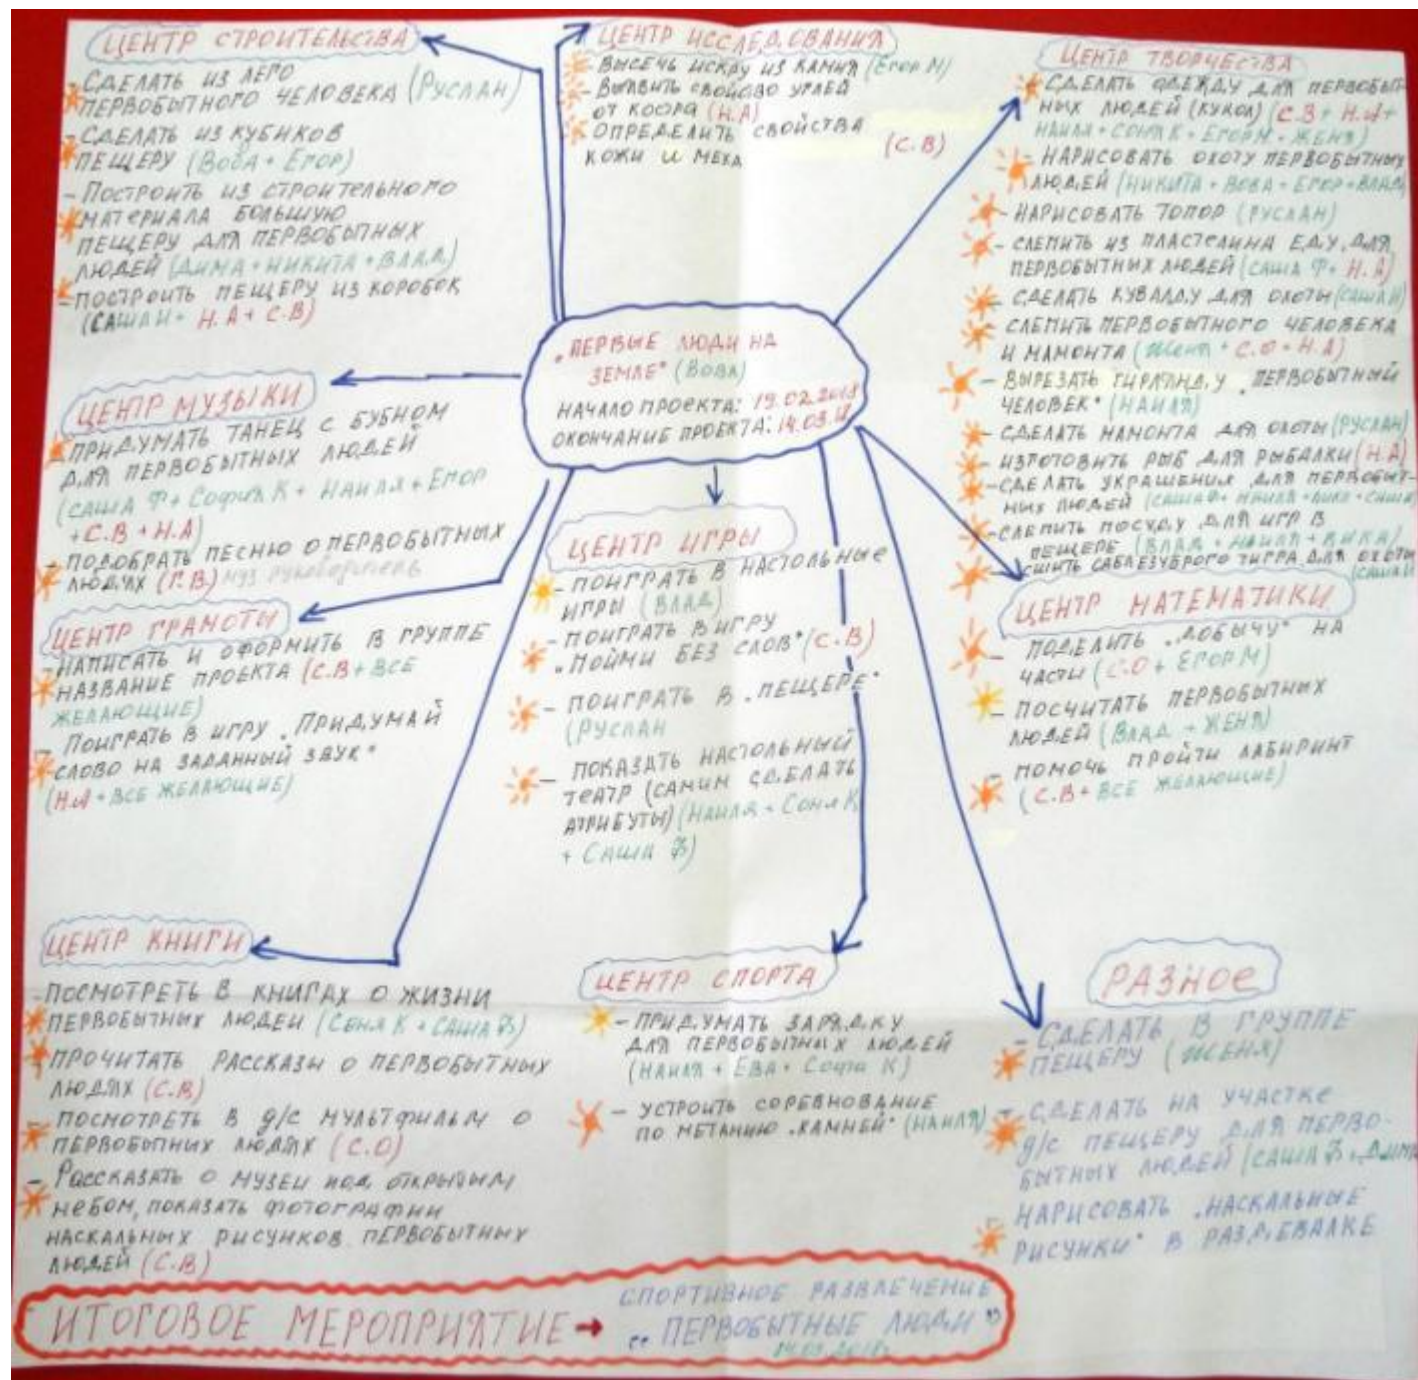 ЦЕНТР СТРОИТЕЛЬСТВА
- СДЕЛАТЬ ИЗ ЛЕГО
ПЕРВОБЫТНОГО ЧЕЛОВЕКА (РУСЛАН)
- СДЕЛАТЬ ИЗ КУБИКОВ
ПЕЩЕРУ (ВОВА + ЕГОР)
- ПОСТРОИТЬ ИЗ СТРОИТЕЛЬНОГО
МАТЕРИАЛА БОЛЬШУЮ
ПЕЩЕРУ ДЛЯ ПЕРВОБЫТНЫХ
ЛЮДЕЙ (ДИМА + НИКИТА + ВЛАД)
- ПОСТРОИТЬ ПЕЩЕРУ ИЗ КОРОБОК
(САША Н + Н.А + С.В)
ЦЕНТР ИССЛЕДОВАНИЯ
- ВЫСЕЧЬ ИСКРУ ИЗ КАМНЯ (ЕГОР М)
- ВЫЯВИТЬ СВОЙСВО УГЛЕЙ
ОТ КОСРА (Н.А)
- ОПРЕДЕЛИТЬ СВОЙСТВА
КОЖИ И МЕХА (С.В)
ЦЕНТР ТВОРЧЕСТВА
- СДЕЛАТЬ ОДЕЖДУ ДЛЯ ПЕРВОБЫТ-
НЫХ ЛЮДЕЙ (КУКОЛ) (С.В + Н.А +
НАИЛЯ + СОНЯ К + ЕГОР М + ЖЕНЯ)
- НАРИСОВАТЬ ОХОТУ ПЕРВОБЫТНЫХ
ЛЮДЕЙ (НИКИТА + ВОВА + ЕГОР + ВЛАД)
- НАРИСОВАТЬ ТОПОР (РУСЛАН)
- СЛЕПИТЬ ИЗ ПЛАСТЕЛИНА ЕДУ ДЛЯ
ПЕРВОБЫТНЫХ ЛЮДЕЙ (САША Ф + Н.А)
- СДЕЛАТЬ КУВАЛДУ ДЛЯ ОХОТЫ (САША Н)
- СЛЕПИТЬ ПЕРВОБЫТНОГО ЧЕЛОВЕКА
И МАМОНТА (ЖЕНЯ + С.О + Н.А)
- ВЫРЕЗАТЬ ГИРЛЯНДУ „ПЕРВОБЫТНЫЙ
ЧЕЛОВЕК" (НАИЛЯ)
- СДЕЛАТЬ МАМОНТА ДЛЯ ОХОТЫ (РУСЛАН)
- ИЗГОТОВИТЬ РЫБ ДЛЯ РЫБАЛКИ (Н.А)
- СДЕЛАТЬ УКРАШЕНИЯ ДЛЯ ПЕРВОБЫТ-
НЫХ ЛЮДЕЙ (САША Ф + НАИЛЯ + + САША
- СЛЕПИТЬ ПОСУДУ ДЛЯ ИГР В
ПЕЩЕРЕ (ВЛАД + НАИЛЯ + )
- СШИТЬ САБЛЕЗУБРОГО ТИГРА ДЛЯ ОХОТЫ
(САША
„ПЕРВЫЕ ЛЮДИ НА
ЗЕМЛЕ" (ВОВА)
НАЧАЛО ПРОЕКТА: 19.02.2018
ОКОНЧАНИЕ ПРОЕКТА: 14.03.18
ЦЕНТР МУЗЫКИ
- ПРИДУМАТЬ ТАНЕЦ С БУБНОМ
ДЛЯ ПЕРВОБЫТНЫХ ЛЮДЕЙ
(САША Ф + СОФИЯ К + НАИЛЯ + ЕГОР
+ С.В + Н.А)
- ПОДОБРАТЬ ПЕСНЮ О ПЕРВОБЫТНЫХ
ЛЮДЯХ (Г.В) муз руководитель
ЦЕНТР ГРАМОТЫ
- НАПИСАТЬ И ОФОРМИТЬ В ГРУППЕ
НАЗВАНИЕ ПРОЕКТА (С.В + ВСЕ
ЖЕЛАЮЩИЕ)
- ПОИГРАТЬ В ИГРУ „ПРИДУМАЙ
СЛОВО НА ЗАДАННЫЙ ЗВУК"
(Н.А + ВСЕ ЖЕЛАЮЩИЕ)
ЦЕНТР ИГРЫ
- ПОИГРАТЬ В НАСТОЛЬНЫЕ
ИГРЫ (ВЛАД)
- ПОИГРАТЬ В ИГРУ
„ПОЙМИ БЕЗ СЛОВ" (С.В)
- ПОИГРАТЬ В „ПЕЩЕРЕ"
(РУСЛАН
- ПОКАЗАТЬ НАСТОЛЬНЫЙ
ТЕАТР (САМИМ СДЕЛАТЬ
АТРИБУТЫ) (НАИЛЯ + СОНЯ К
+ САША Ф)
ЦЕНТР МАТЕМАТИКИ
- ПОДЕЛИТЬ „ДОБЫЧУ" НА
ЧАСТИ (С.О + ЕГОР М)
- ПОСЧИТАТЬ ПЕРВОБЫТНЫХ
ЛЮДЕЙ (ВЛАД + ЖЕНЯ)
- ПОМОЧЬ ПРОЙТИ ЛАБИРИНТ
(С.В + ВСЕ ЖЕЛАЮЩИЕ)
ЦЕНТР КНИГИ
- ПОСМОТРЕТЬ В КНИГАХ О ЖИЗНИ
ПЕРВОБЫТНЫХ ЛЮДЕЙ (СОНЯ К + САША Ф)
- ПРОЧИТАТЬ РАССКАЗЫ О ПЕРВОБЫТНЫХ
ЛЮДЯХ (С.В)
- ПОСМОТРЕТЬ В Д/С МУЛЬТФИЛЬМ О
ПЕРВОБЫТНЫХ ЛЮДЯХ (С.О)
- РАССКАЗАТЬ О МУЗЕИ ПОД ОТКРЫТЫМ
НЕБОМ, ПОКАЗАТЬ ФОТОГРАФИИ
НАСКАЛЬНЫХ РИСУНКОВ ПЕРВОБЫТНЫХ
ЛЮДЕЙ (С.В)
ЦЕНТР СПОРТА
- ПРИДУМАТЬ ЗАРЯДКУ
ДЛЯ ПЕРВОБЫТНЫХ ЛЮДЕЙ
(НАИЛЯ + ЕВА + СОФИЯ К)
- УСТРОИТЬ СОРЕВНОВАНИЕ
ПО МЕТАНИЮ „КАМНЕЙ" (НАИЛЯ)
РАЗНОЕ
- СДЕЛАТЬ В ГРУППЕ
ПЕЩЕРУ (ЖЕНЯ)
- СДЕЛАТЬ НА УЧАСТКЕ
Д/С ПЕЩЕРУ ДЛЯ ПЕРВО-
БЫТНЫХ ЛЮДЕЙ (САША Ф + ДИМА
- НАРИСОВАТЬ „НАСКАЛЬНЫЕ
РИСУНКИ" В РАЗДЕВАЛКЕ
ИТОГОВОЕ МЕРОПРИЯТИЕ → СПОРТИВНОЕ РАЗВЛЕЧЕНИЕ
„ПЕРВОБЫТНЫЕ ЛЮДИ"
14.03.2018г